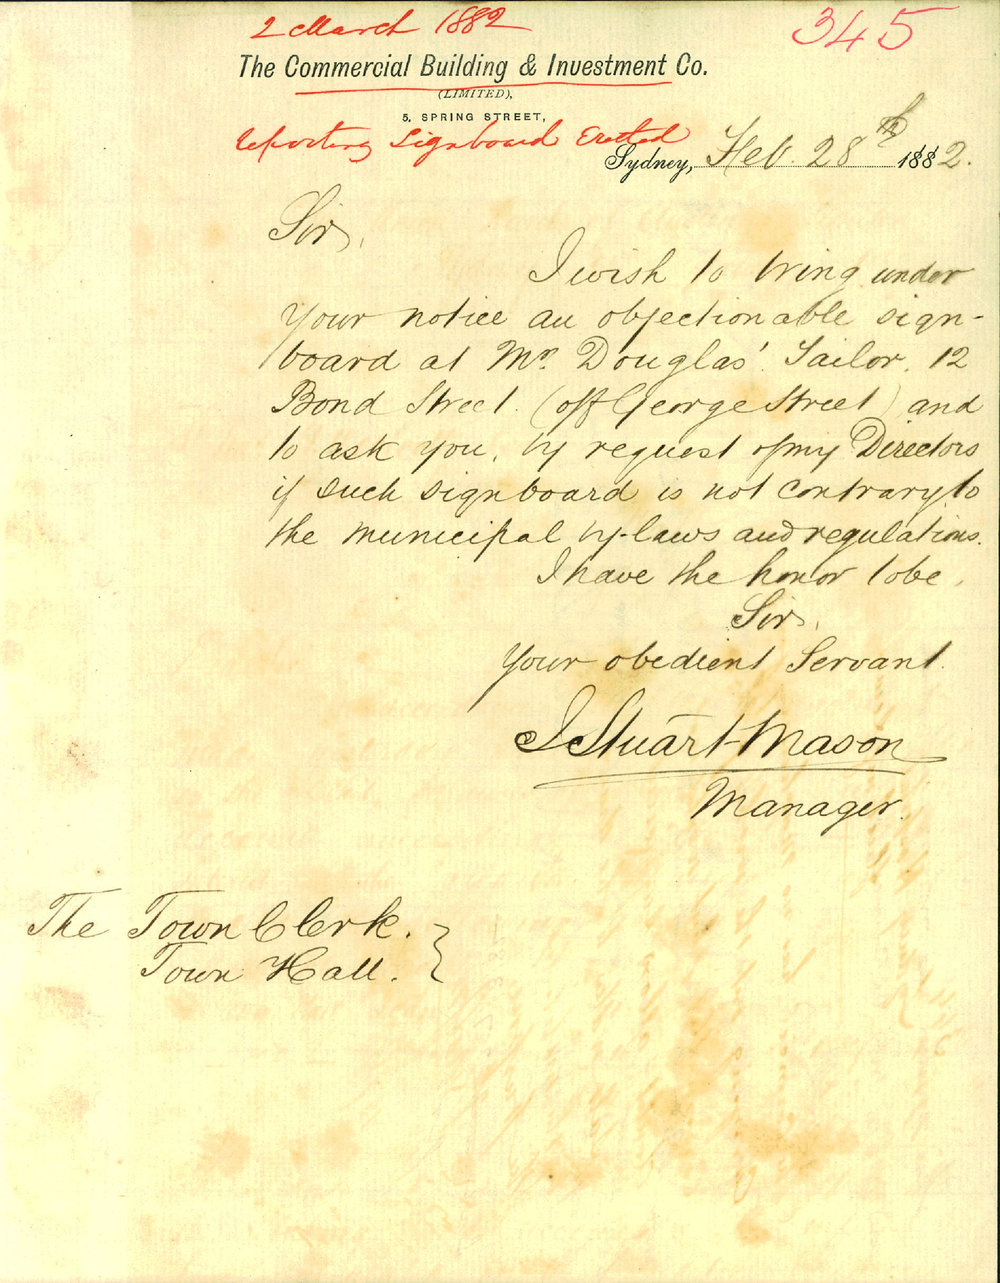 2 March 1882
345
The Commercial Building & Investment Co.
(LIMITED),
5, SPRING STREET,
reporting Signboard Erected
Sydney, Feb. 28th 1882.
Sir,
I wish to bring under
your notice an objectionable sign-
board at Mr. Douglas', Tailor, 12
Bond Street (off George Street) and
to ask you, by request of my Directors
if such signboard is not contrary to
the municipal by-laws and regulations.
I have the honor to be,
Sir,
Your obedient Servant.
J Stuart-Mason
Manager.
The Town Clerk.
Town Hall.